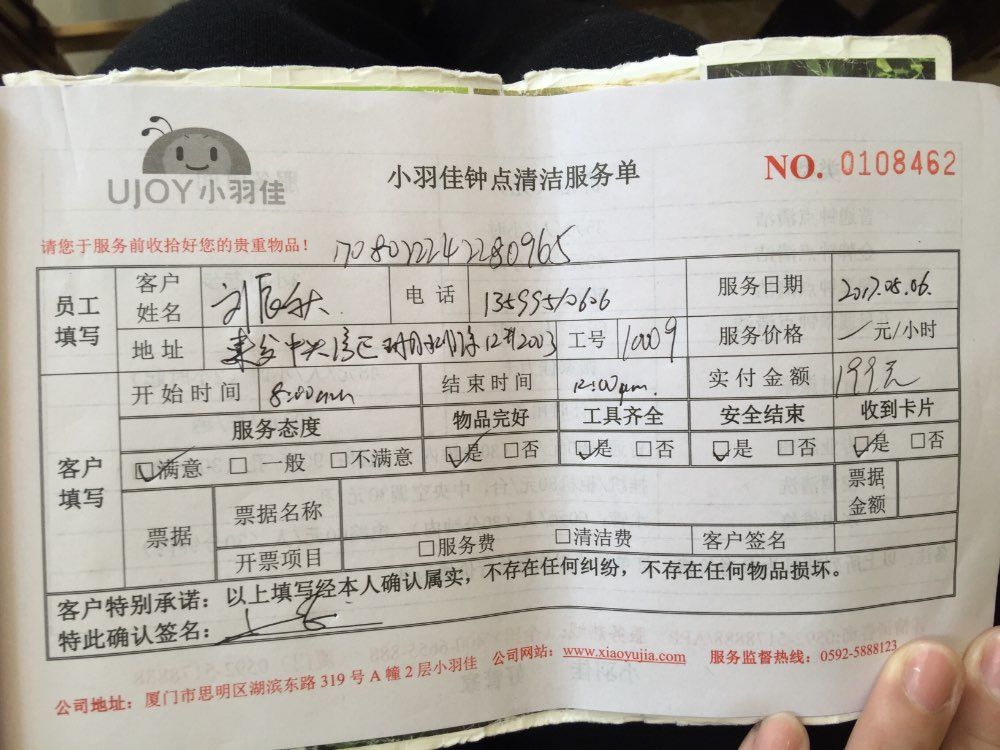 UJOY小羽佳
小羽佳钟点清洁服务单
NO. 0108462
请您于服务前收拾好您的贵重物品！
员工填写 客户姓名 电话 13599510606 服务日期 2017.05.06.
地址 12#2003 工号 10009 服务价格 一元/小时
开始时间 8:00am 结束时间 12:00pm. 实付金额 199元
客户填写 服务态度 物品完好 工具齐全 安全结束 收到卡片
☑满意 □一般 □不满意 ☑是 □否 ☑是 □否 ☑是 □否 ☑是 □否
票据 票据名称 票据金额
开票项目 □服务费 □清洁费 客户签名
客户特别承诺：以上填写经本人确认属实，不存在任何纠纷，不存在任何物品损坏。
特此确认签名：
公司地址：厦门市思明区湖滨东路319号A幢2层小羽佳 公司网站：www.xiaoyujia.com 服务监督热线：0592-5888123